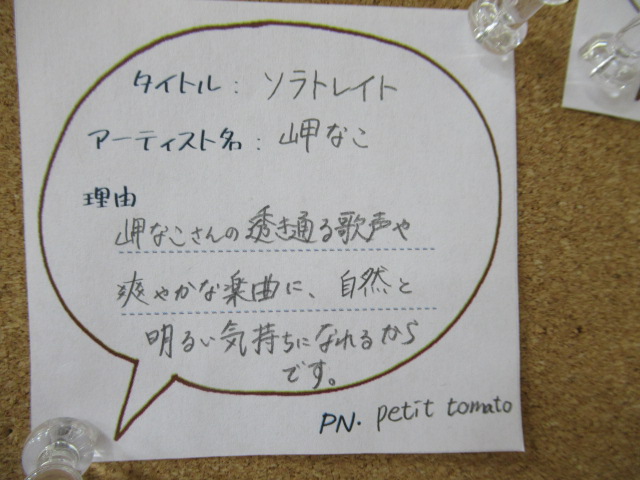 タイトル：ソラトレイト
アーティスト名：岬なこ
理由
岬なこさんの透き通る歌声や
爽やかな楽曲に、自然と
明るい気持ちになれるから
です。
PN. petit tomato